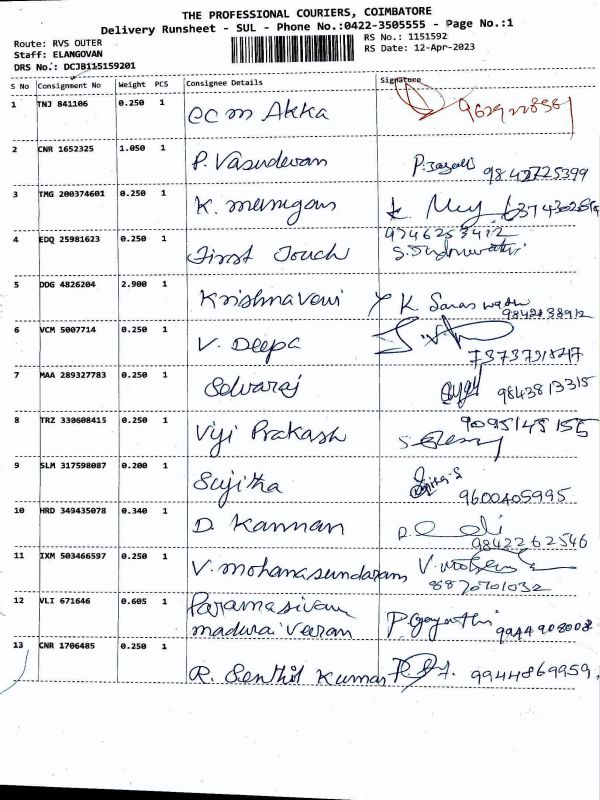 THE PROFESSIONAL COURIERS, COIMBATORE
Delivery Runsheet - SUL - Phone No.:0422-3505555 - Page No.:1
Route: RVS OUTER
RS No.: 1151592
Staff: ELANGOVAN
RS Date: 12-Apr-2023
DRS No.: DCJB115159201
S No Consignment No Weight PCS Consignee Details Signature
1 TNJ 841106 0.250 1 CCM Akka
2 CNR 1652325 1.050 1 P. Vasudevan 9842725399
3 TMG 200374601 0.250 1 K. Murugan
4 EDQ 25981623 0.250 1 First Touch
5 DDG 4826204 2.900 1 Krishnaveni K Saraswathi
6 VCM 5007714 0.250 1 V. Deepa
7 MAA 289327783 0.250 1 Selvaraj 9843813315
8 TRZ 330608415 0.250 1 Viji Prakash 9095145155
9 SLM 317598087 0.200 1 Sujitha 9600405995
10 HRD 349435078 0.340 1 D. Kannan 9842262546
11 IXM 503466597 0.250 1 V. mohanasundaram
8870701032
12 VLI 671646 0.605 1 Paramasivam
madurai Veeran P. Gayathri 9944908008
13 CNR 1706485 0.250 1 R. Senthil Kumar 9944869959